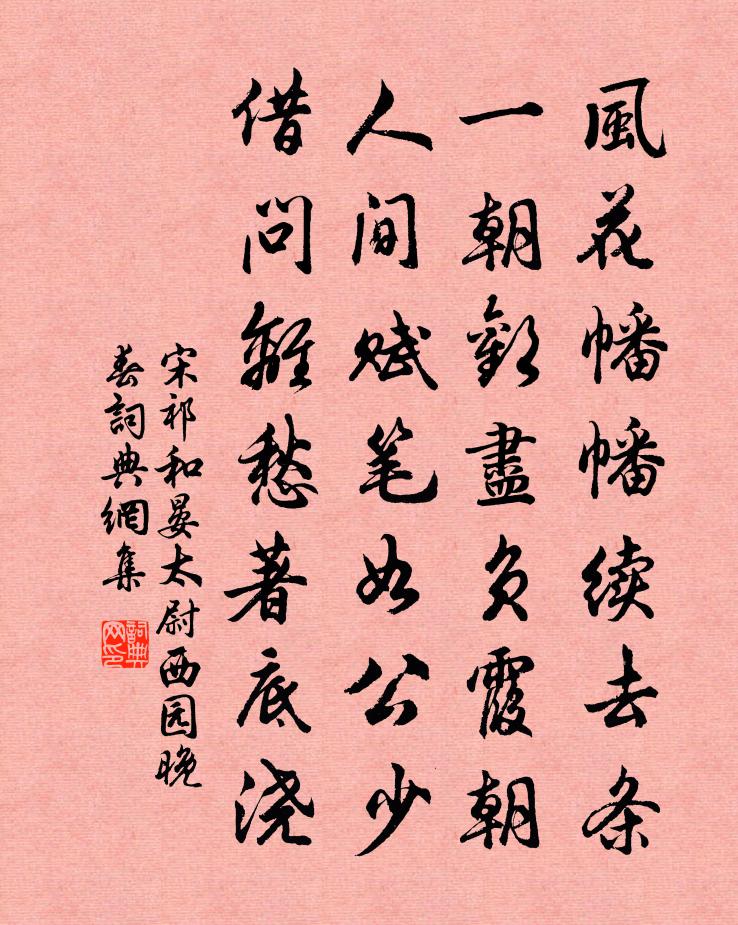 風花幡幡续去条
一朝歡盡負霞朝
人间赋笔如公少
借问離愁著底浇
宋祁和晏太尉西园晚
春詞典網集
詞典网印